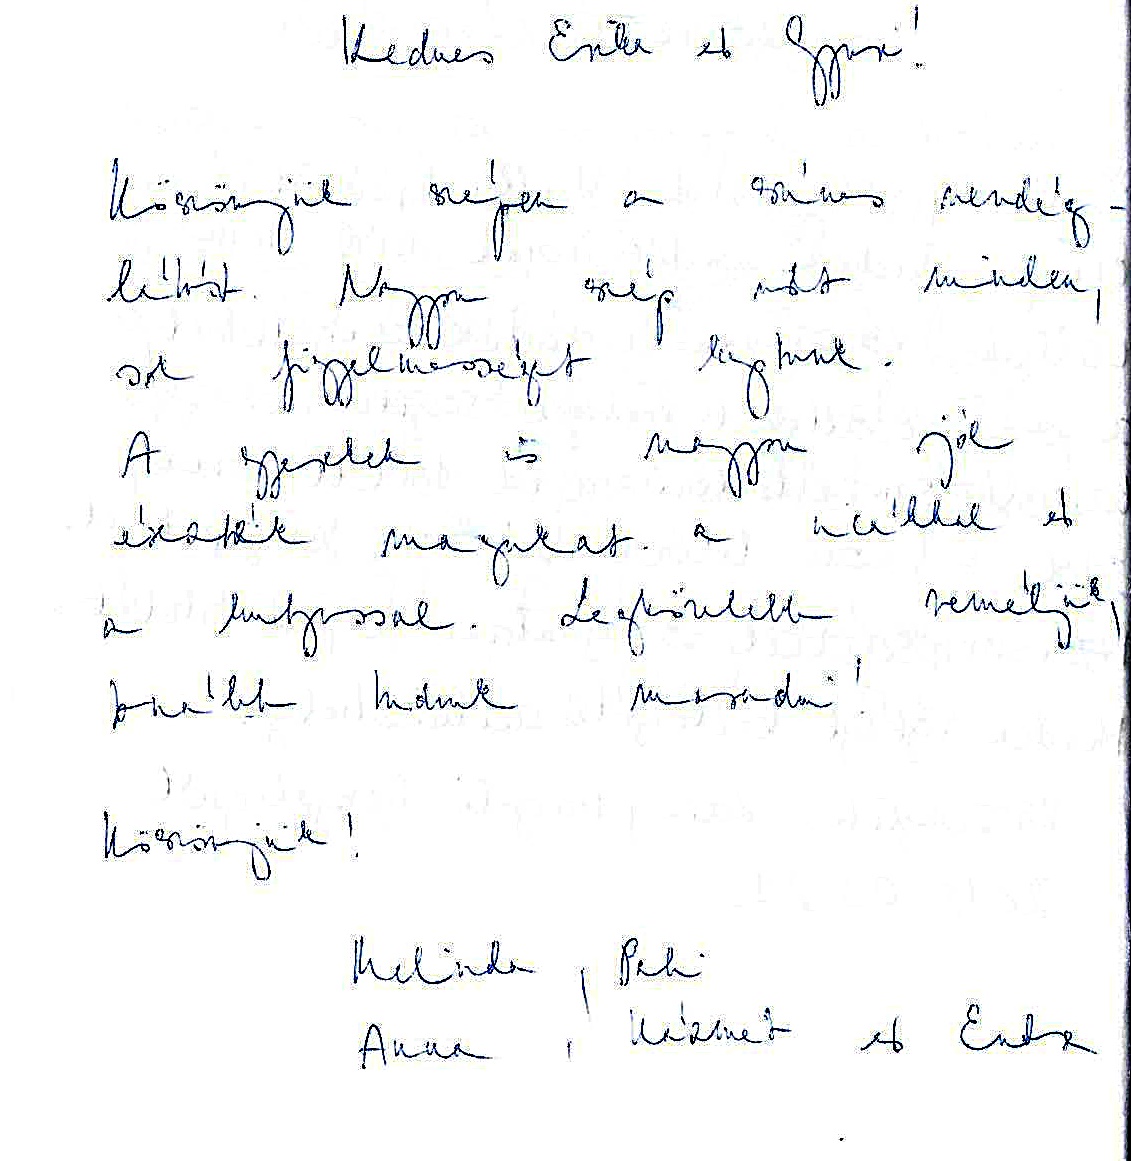 Kedves Erika és Gyuri!
Köszönjük szépen a szíves vendég-
látást. Nagyon szép volt minden,
sok figyelmességet kaptunk.
A gyerekek is nagyon jól
érezték magukat. a cicákkal és
a kutyussal. Legközelebb reméljük,
tovább tudunk maradni!
Köszönjük!
Melinda, Pali
Anna, Kázmér és Endre